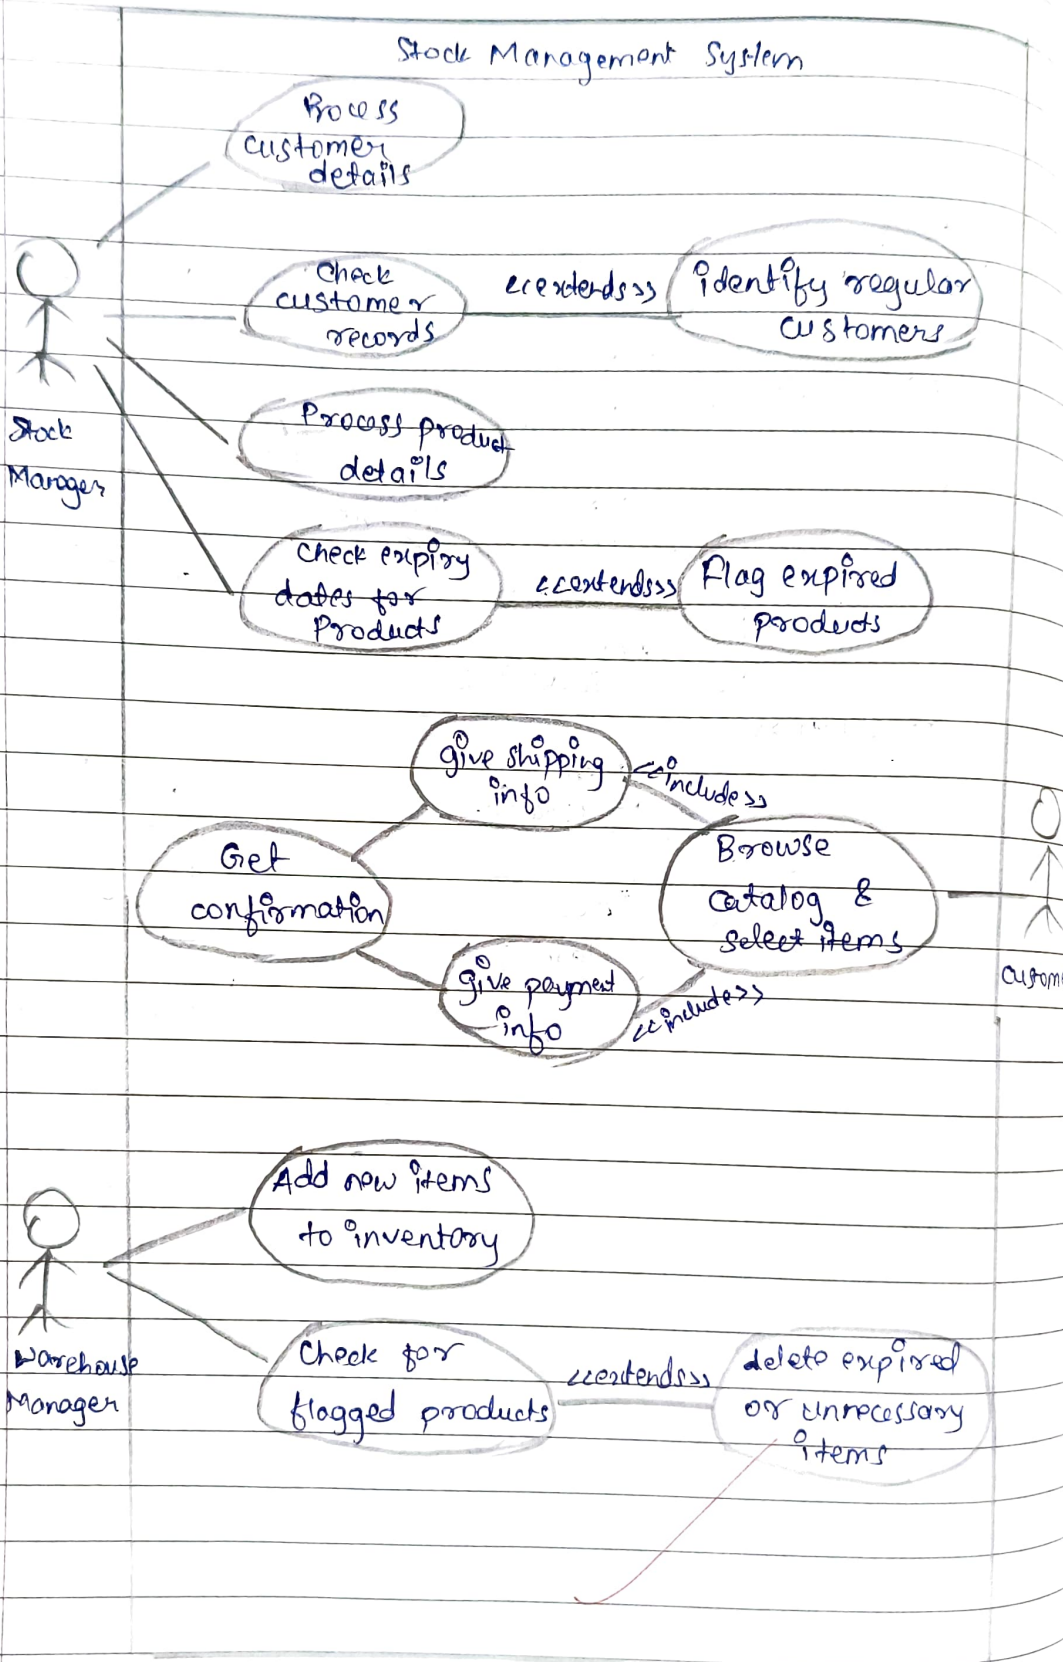 Stock Management System
Process
customer
details
Check
customer
records
<<extends>>
identify regular
customers
Stock
Manager
Process product
details
Check expiry
dates for
Products
<<extends>>
Flag expired
products
give shipping
info
<<include>>
Get
confirmation
Browse
catalog &
select items
give payment
info
<<include>>
Custom
Add new items
to inventory
Warehouse
Manager
Check for
flagged products
<<extends>>
delete expired
or unnecessary
items